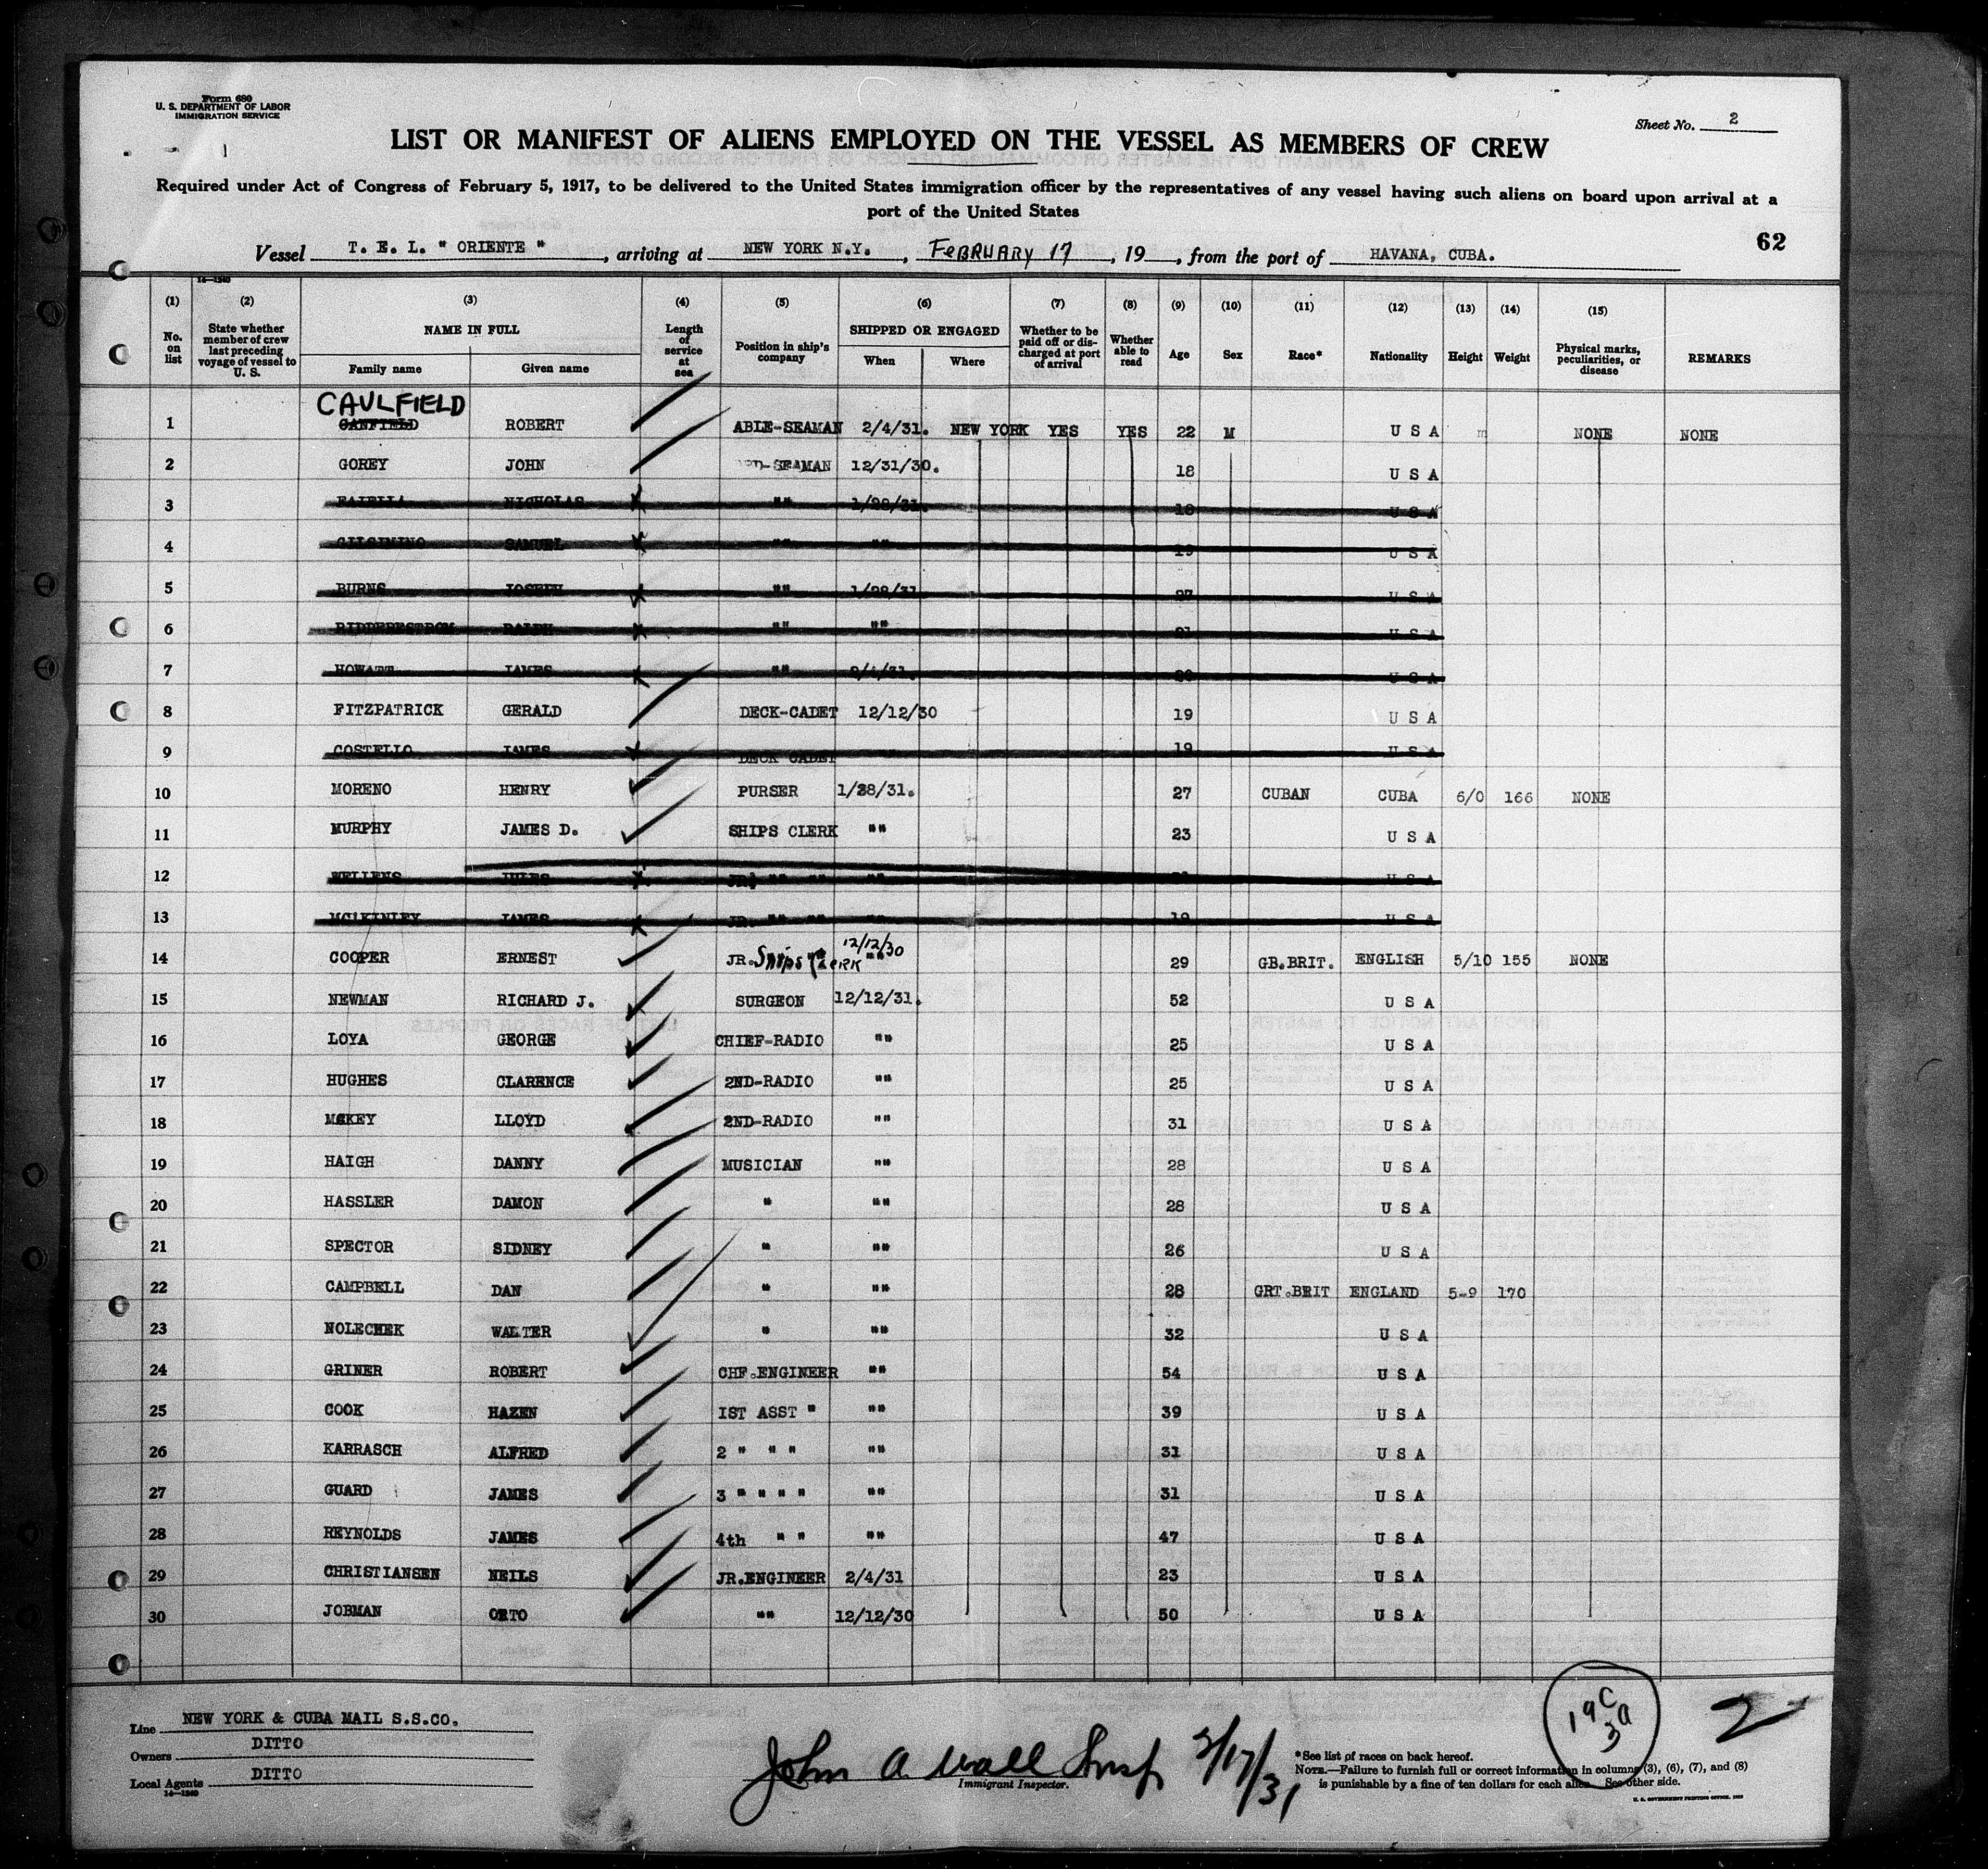 Form 680
U. S. DEPARTMENT OF LABOR
IMMIGRATION SERVICE
Sheet No. 2
LIST OR MANIFEST OF ALIENS EMPLOYED ON THE VESSEL AS MEMBERS OF CREW
Required under Act of Congress of February 5, 1917, to be delivered to the United States immigration officer by the representatives of any vessel having such aliens on board upon arrival at a
port of the United States
62
Vessel T. E. L. " ORIENTE ", arriving at NEW YORK N.Y., FEBRUARY 17, 19 , from the port of HAVANA, CUBA.
14—1240
(1) (2) (3) (4) (5) (6) (7) (8) (9) (10) (11) (12) (13) (14) (15)
No. on list State whether member of crew last preceding voyage of vessel to U. S. NAME IN FULL Family name Given name Length of service at sea Position in ship's company SHIPPED OR ENGAGED When Where Whether to be paid off or discharged at port of arrival Whether able to read Age Sex Race* Nationality Height Weight Physical marks, peculiarities, or disease REMARKS
CAULFIELD
1 CANFIELD ROBERT ABLE-SEAMAN 2/4/31. NEW YORK YES YES 22 M U S A NONE NONE
2 GOREY JOHN SEAMAN 12/31/30. 18 U S A
3 NICHOLAS "" 1/28/31. 18 U S A
4 SAMUEL "" "" 19 U S A
5 BURNS JOSEPH "" 1/28/31 27 U S A
6 RALPH "" "" 21 U S A
7 HOWATT JAMES "" 2/4/31. 20 U S A
8 FITZPATRICK GERALD DECK-CADET 12/12/30 19 U S A
9 COSTELLO JAMES DECK CADET 19 U S A
10 MORENO HENRY PURSER 1/28/31. 27 CUBAN CUBA 6/0 166 NONE
11 MURPHY JAMES D. SHIPS CLERK "" 23 U S A
12 WELLENS JULES JR. "" "" "" 21 U S A
13 MC'KINLEY JAMES JR. "" "" "" 19 U S A
14 COOPER ERNEST JR. Ships Clerk 12/12/30 "" 29 GB.BRIT. ENGLISH 5/10 155 NONE
15 NEWMAN RICHARD J. SURGEON 12/12/31. 52 U S A
16 LOYA GEORGE CHIEF-RADIO "" 25 U S A
17 HUGHES CLARENCE 2ND-RADIO "" 25 U S A
18 MCKEY LLOYD 2ND-RADIO "" 31 U S A
19 HAIGH DANNY MUSICIAN "" 28 U S A
20 HASSLER DAMON " "" 28 U S A
21 SPECTOR SIDNEY " "" 26 U S A
22 CAMPBELL DAN " "" 28 GRT.BRIT ENGLAND 5-9 170
23 NOLECHEK WALTER " "" 32 U S A
24 GRINER ROBERT CHF.ENGINEER "" 54 U S A
25 COOK HAZEN IST ASST " "" 39 U S A
26 KARRASCH ALFRED 2 " " " "" 31 U S A
27 GUARD JAMES 3 " " " " "" 31 U S A
28 REYNOLDS JAMES 4th " " "" 47 U S A
29 CHRISTIANSEN NEILS JR.ENGINEER 2/4/31 23 U S A
30 JOBMAN OTTO "" 12/12/30 50 U S A
Line NEW YORK & CUBA MAIL S.S.CO.
Owners DITTO
Local Agents DITTO
14—1240
John A Wall Insp 2/17/31
Immigrant Inspector.
*See list of races on back hereof.
NOTE.—Failure to furnish full or correct information in columns (3), (6), (7), and (8)
is punishable by a fine of ten dollars for each alien. See other side.
U. S. GOVERNMENT PRINTING OFFICE
19 C
3 a
2